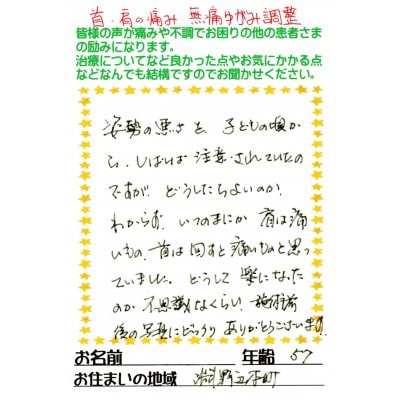 首・肩の痛み 無痛ゆがみ調整
皆様の声が痛みや不調でお困りの他の患者さま
の励みになります。
治療についてなど良かった点やお気にかかる点
などなんでも結構ですのでお聞かせください。
姿勢の悪さを、子どもの頃か
ら、しばしば注意されていたの
ですが、どうしたらよいのか、
わからず、いつのまにか 肩は痛
いもの、首は回すと痛いものと思っ
ていました。どうして 楽になった
のか 不思議なくらい、施術前
後の写真にびっくり ありがとうございます。
お名前 年齢 57
お住まいの地域